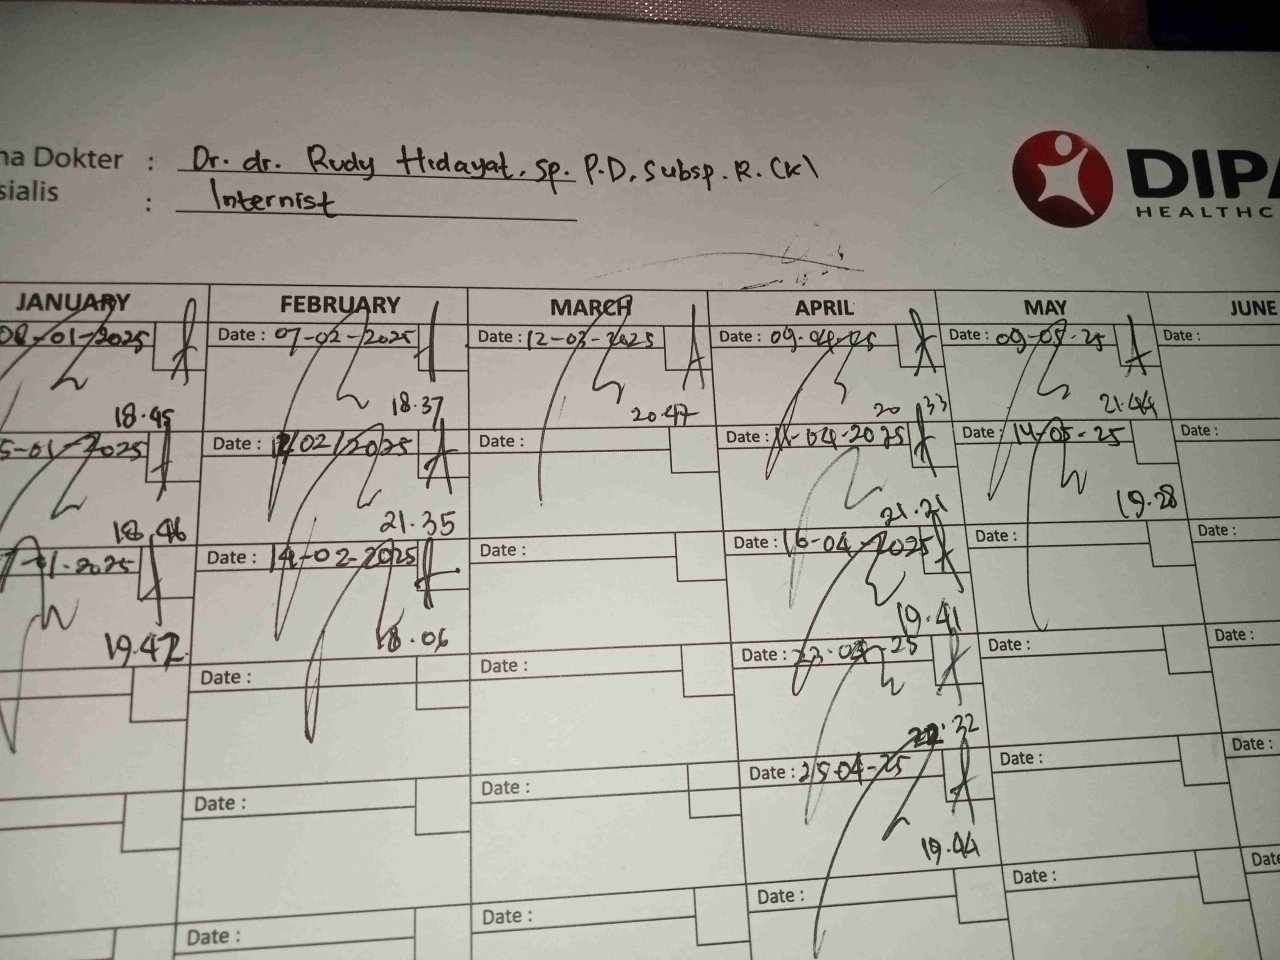 na Dokter : Dr. dr. Rudy Hidayat, Sp. P.D, Subsp. R. (K)
sialis : Internist
DIPA
HEALTHC
JANUARY FEBRUARY MARCH APRIL MAY JUNE
08-01-2025 Date : 07-02-2025 Date : 12-03-2025 Date : 09-04-25 Date : 09-05-25 Date :
18.45 18.37 20.47 20 33 21.44
5-01-2025 Date : 12/02/2025 Date : Date : 11-04-2025 Date : 14-05-25 Date :
18.46 21.35 21.21 19.28
7-01-2025 Date : 14-02-2025 Date : Date : 16-04-2025 Date : Date :
19.42 18.06 19.41
Date : Date : Date : 23-04-25 Date : Date :
32
Date : Date : Date : 25-04-25 Date : Date :
19.44
Date : Date : Date : Date : Date